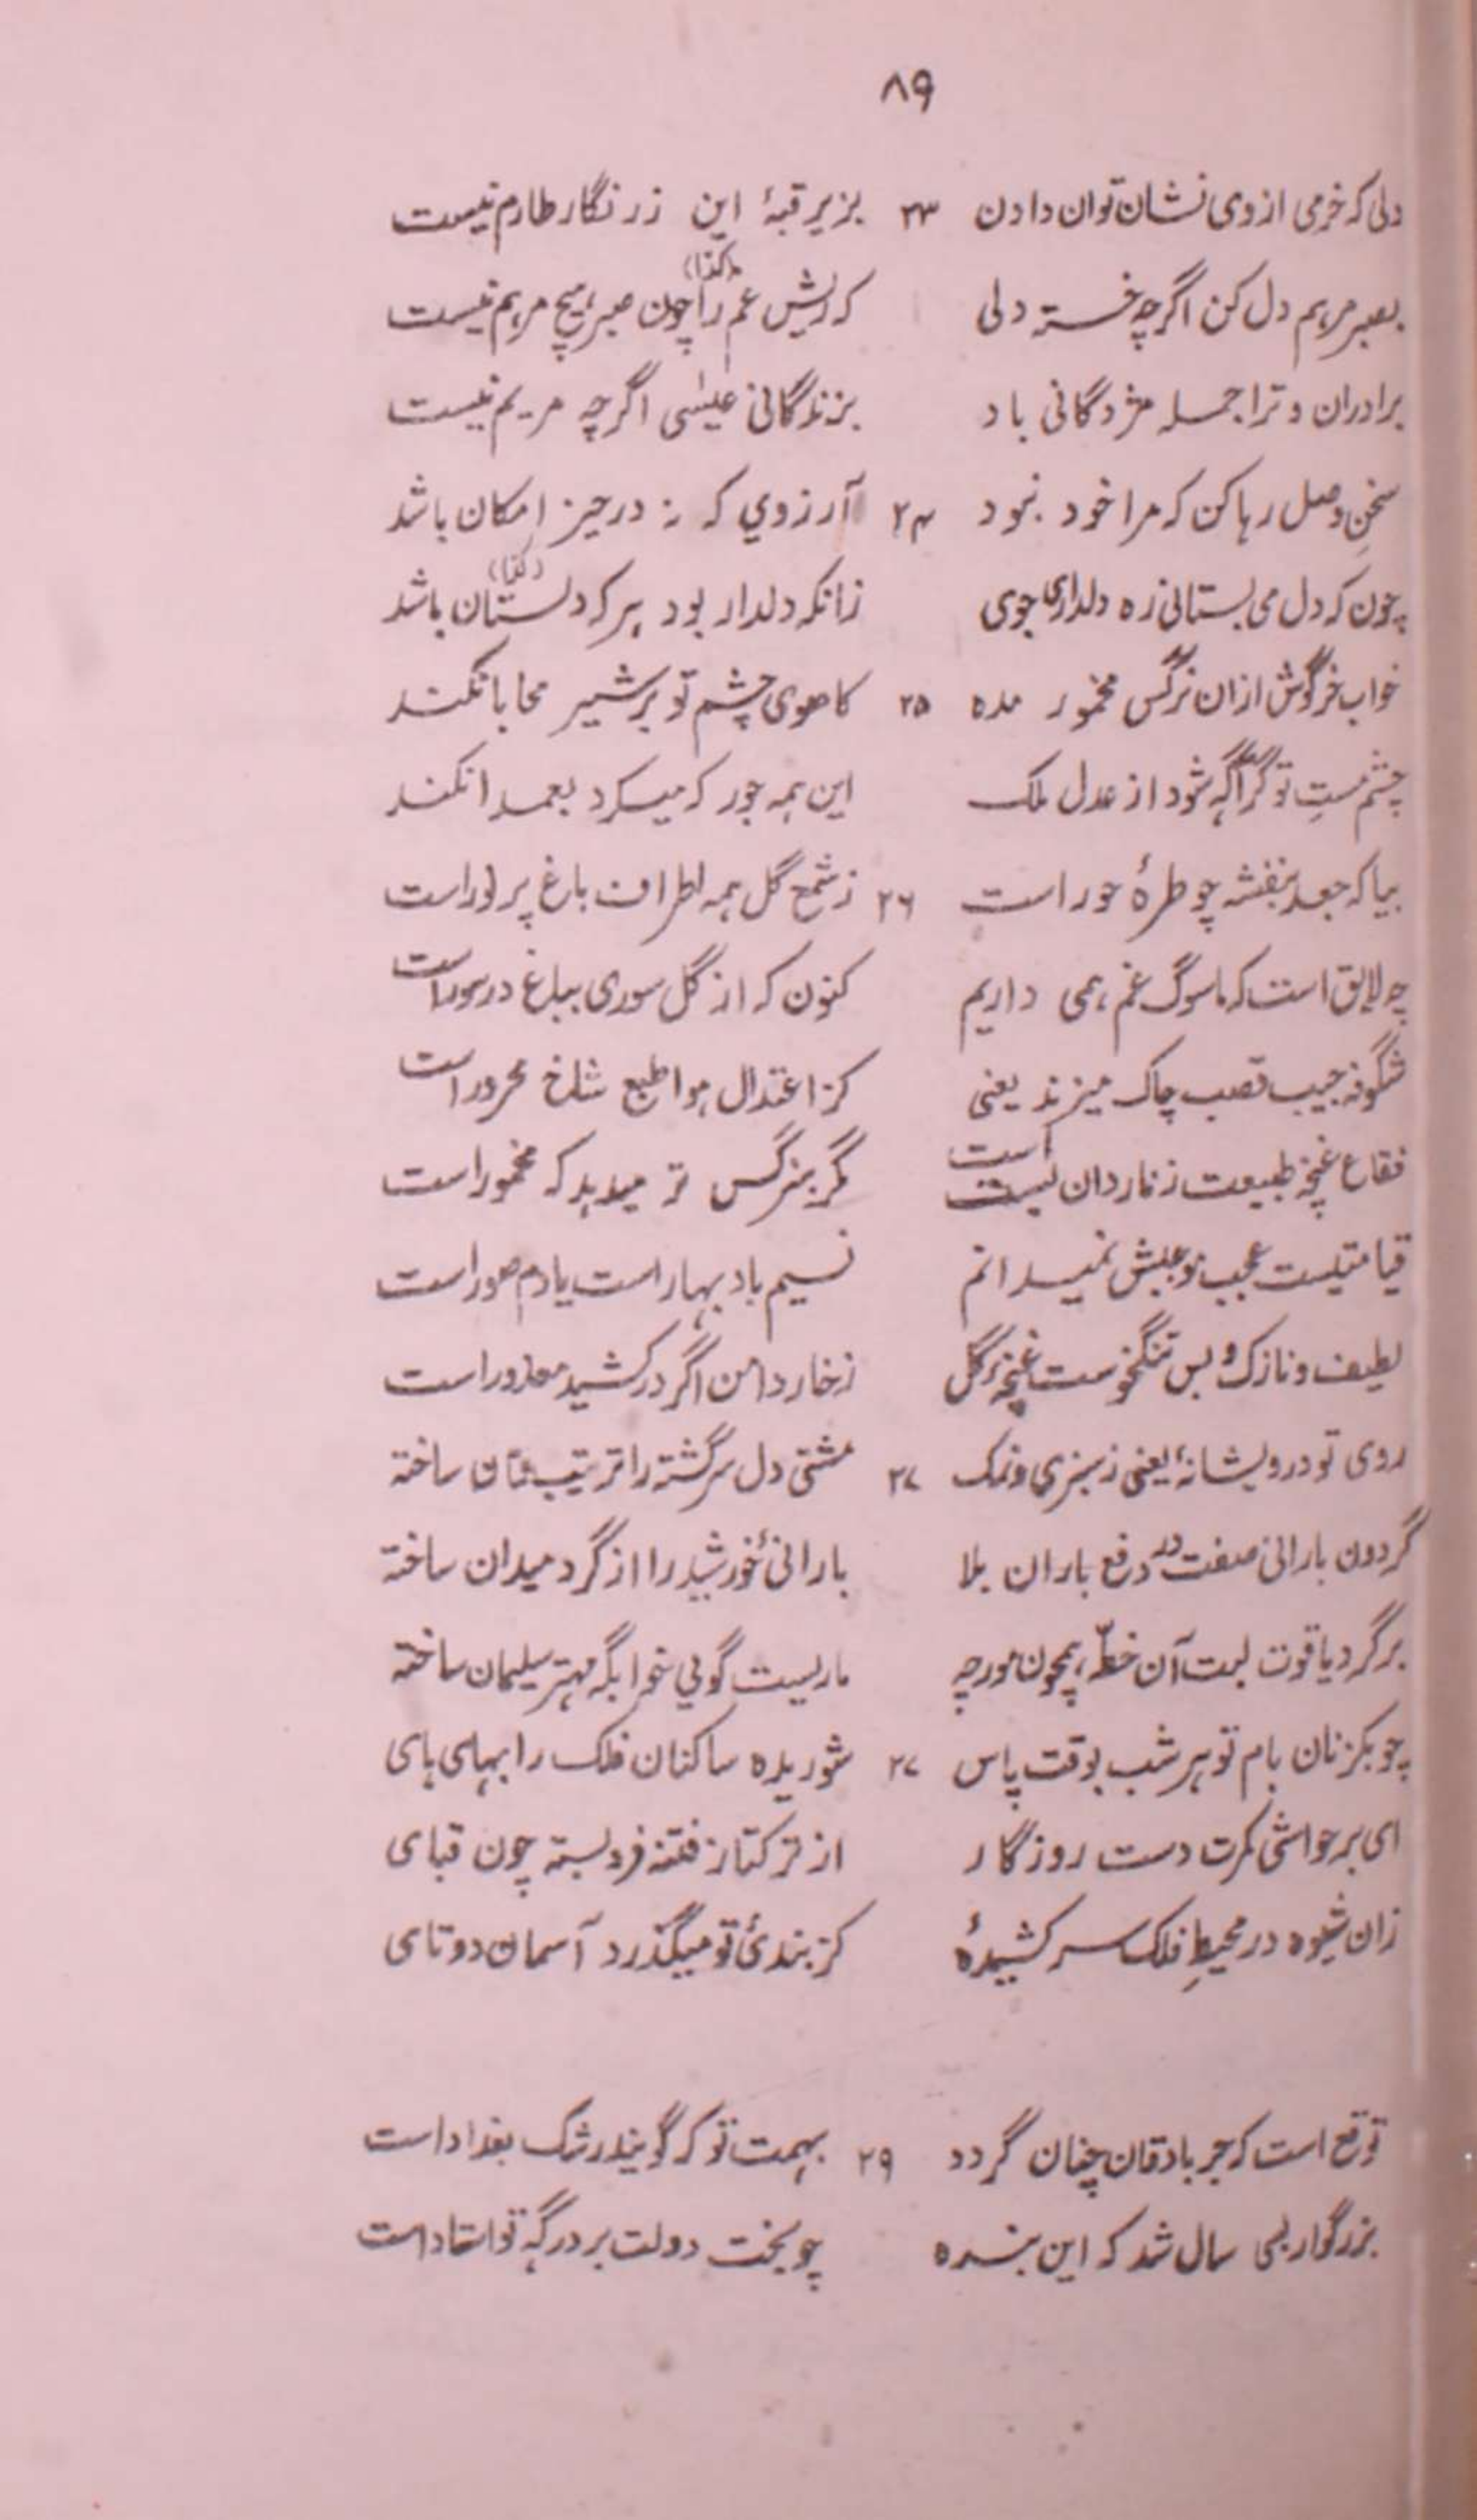 ۸۹
دلی که خرمی از وی نشان توان دادن ۲۳ بزیر قبهٔ این زر نگار طارم نیست
بصبر مرهم دل کن اگرچه خسته دلی که ریش غم را (کذا) چون صبر هیچ مرهم نیست
برادران و ترا جمله مژدگانی باد بزندگانی عیسٰی اگرچه مریم نیست
سخنِ وصل رها کن که مرا خود نبود ۲۴ آرزوي که نه در حیز امکان باشد
چون که دل می بستانی زه دلداری جوی زانکه دلدار بود هر که دلستان (کذا) باشد
خواب خرگوش ازان نرگس مخمور مده ۲۵ کاهوی چشم تو بر شیر محابا نکند
چشم مستِ تو گر آگه شود از عدل ملک این همه جور که میکرد بعمدا نکند
بیا که جعد بنفشه چو طرهٔ حور است ۲۶ ز شمع گل همه اطراف باغ پر نور است
چه لایق است که ما سوگ غم همی داریم کنون که از گل سوری بباغ در سور است
شگوفه جیب قصب چاک میزند یعنی کز اعتدال هوا طبع شاخ محرور است
فقاع غنچه طبیعت ز ناردان بست است مگر بنرگس تر میدهد که مخمور است
قیامتیست عجب نوعبش نمیدانم نسیم باد بهار است یا دم صور است
لطیف و نازک و بس تنگخوست غنچهٔ گل ز خار دامن اگر در کشید معذور است
روی تو درویشانهٔ یعنی ز سبزی و نمک ۲۷ عشقی دل سرگشته را ترتیب سامان ساخته
گردون بارانی صفت در دفع باران بلا بارانیٔ خورشید را از گرد میدان ساخته
بر گرد یاقوت لبت آن خطّ همچون مورچه ماریست گویي خوابگه مهتر سلیمان ساخته
چوبکزنان بام تو هر شب بوقت پاس ۲۷ شوریده ساکنان فلک را بهای های
ای بر حواشی کمرت دست روزگار از ترکتاز فتنه فرو بسته چون قبای
زان شیوه در محیطِ فلک سر کشیدهٔ کز بندیٔ تو میگذرد آسمان دوتای
توقع است که جرباد قان چنان گردد ۲۹ بهمت تو که گویند رشک بغداد است
بزرگوار بسی سال شد که این بنده چو بخت دولت بر درگه تو استاد است